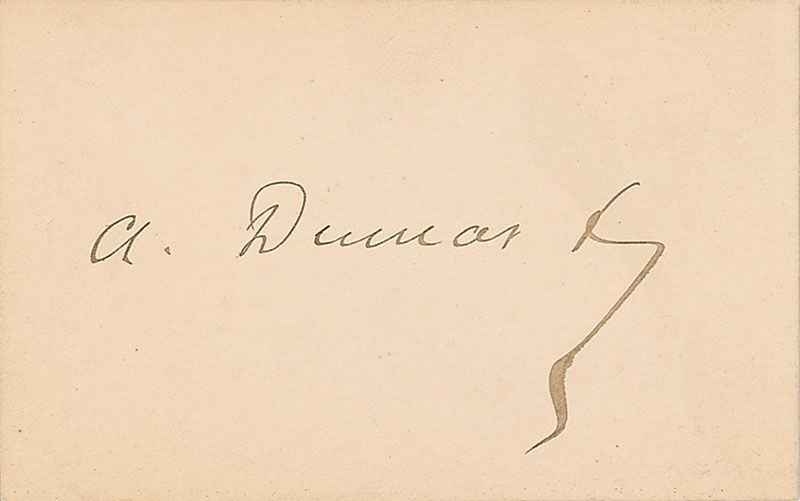 A. Dumas f